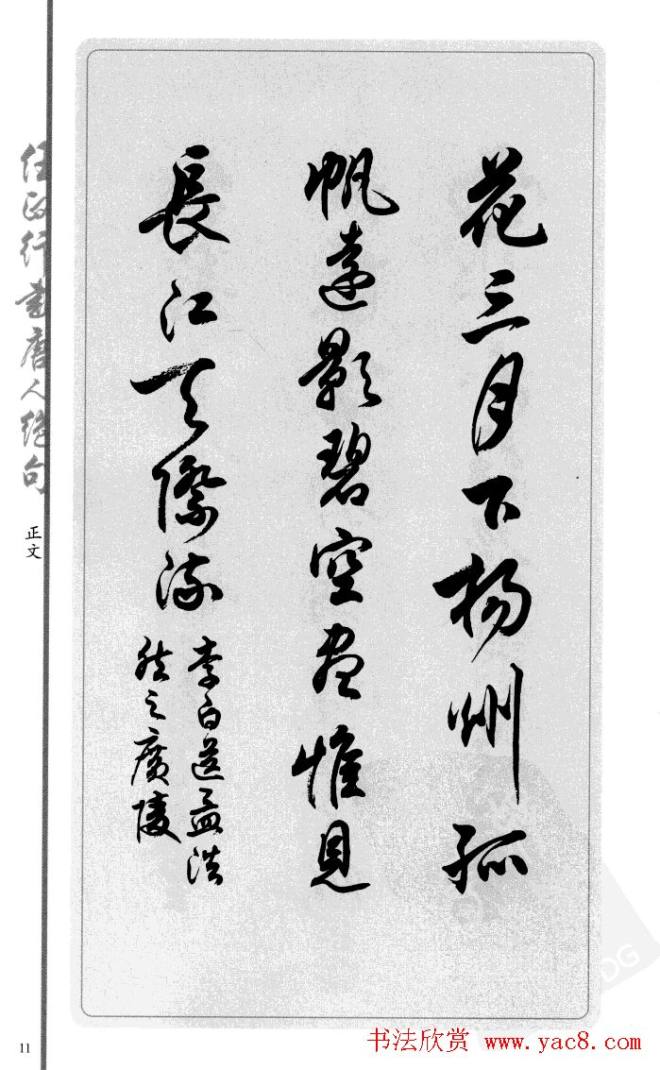 花三月下杨州孤
帆遠影碧空盡惟見
長江天際流
李白送孟浩
然之廣陵
任政行書唐人绝句
正文
11
书法欣赏 www.yac8.com